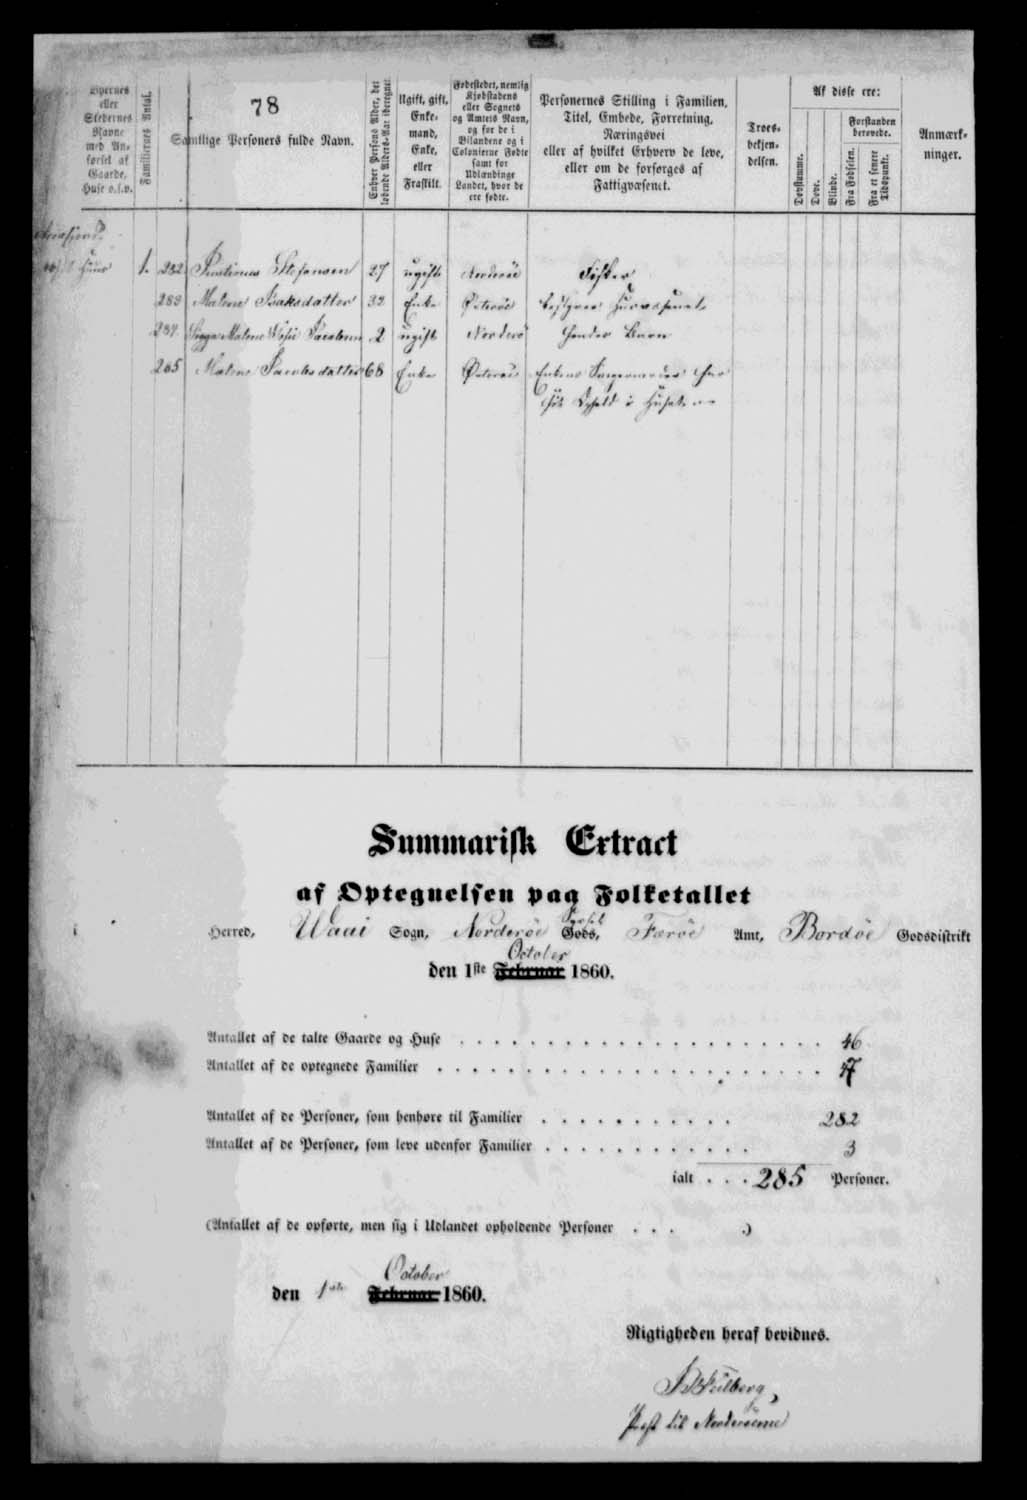 Byernes
eller
Stedernes
Navne
med An-
førsel af
Gaarde,
Huse o.s.v.
Familiernes Antal.
78
Samtlige Personers fulde Navn.
Enhver Persons Alder, det
løbende Alders-Aar iberegnet.
Ugift, gift,
Enke-
mand,
Enke,
eller
Fraskilt.
Fødestedet, nemlig
Kjøbstadens
eller Sognets
og Amtets Navn,
og for de i
Bilandene og i
Colonierne Fødte
samt for
Udlændinge
Landet, hvor de
ere fødte.
Personernes Stilling i Familien,
Titel, Embede, Forretning,
Næringsvei
eller af hvilket Erhverv de leve,
eller om de forsørges af
Fattigvæsenet.
Troes-
bekjen-
delsen.
Af disse ere:
Døvstumme.
Døve.
Blinde.
Forstanden
berøvede.
Fra Fødselen.
Fra et senere
Tidspunkt.
Anmærk-
ninger.
Huus 1. 282 Stefansen 27 ugift Norderöe Fisker
283 Malene Isaksdatter 32 Enke Österöe
284. Malene Jacobsen 2 ugift Norderö hendes Barn
285 Malene Jacobsdatter 68 Enke Österöe Enkens
Ophold i Huset
Summarisk Extract
af Optegnelsen paa Folketallet
Herred, Waai Sogn, Norderöe Gods, Færöe Amt, Bordöe Godsdistrikt
October
den 1ste Februar 1860.
Antallet af de talte Gaarde og Huse . . . 46
Antallet af de optegnede Familier . . . 47
Antallet af de Personer, som henhøre til Familier . . . 282
Antallet af de Personer, som leve udenfor Familier . . . 3
ialt . . . 285 Personer.
(Antallet af de opførte, men sig i Udlandet opholdende Personer . . . .)
October
den 1ste Februar 1860.
Rigtigheden heraf bevidnes.
Præst til Norderöerne